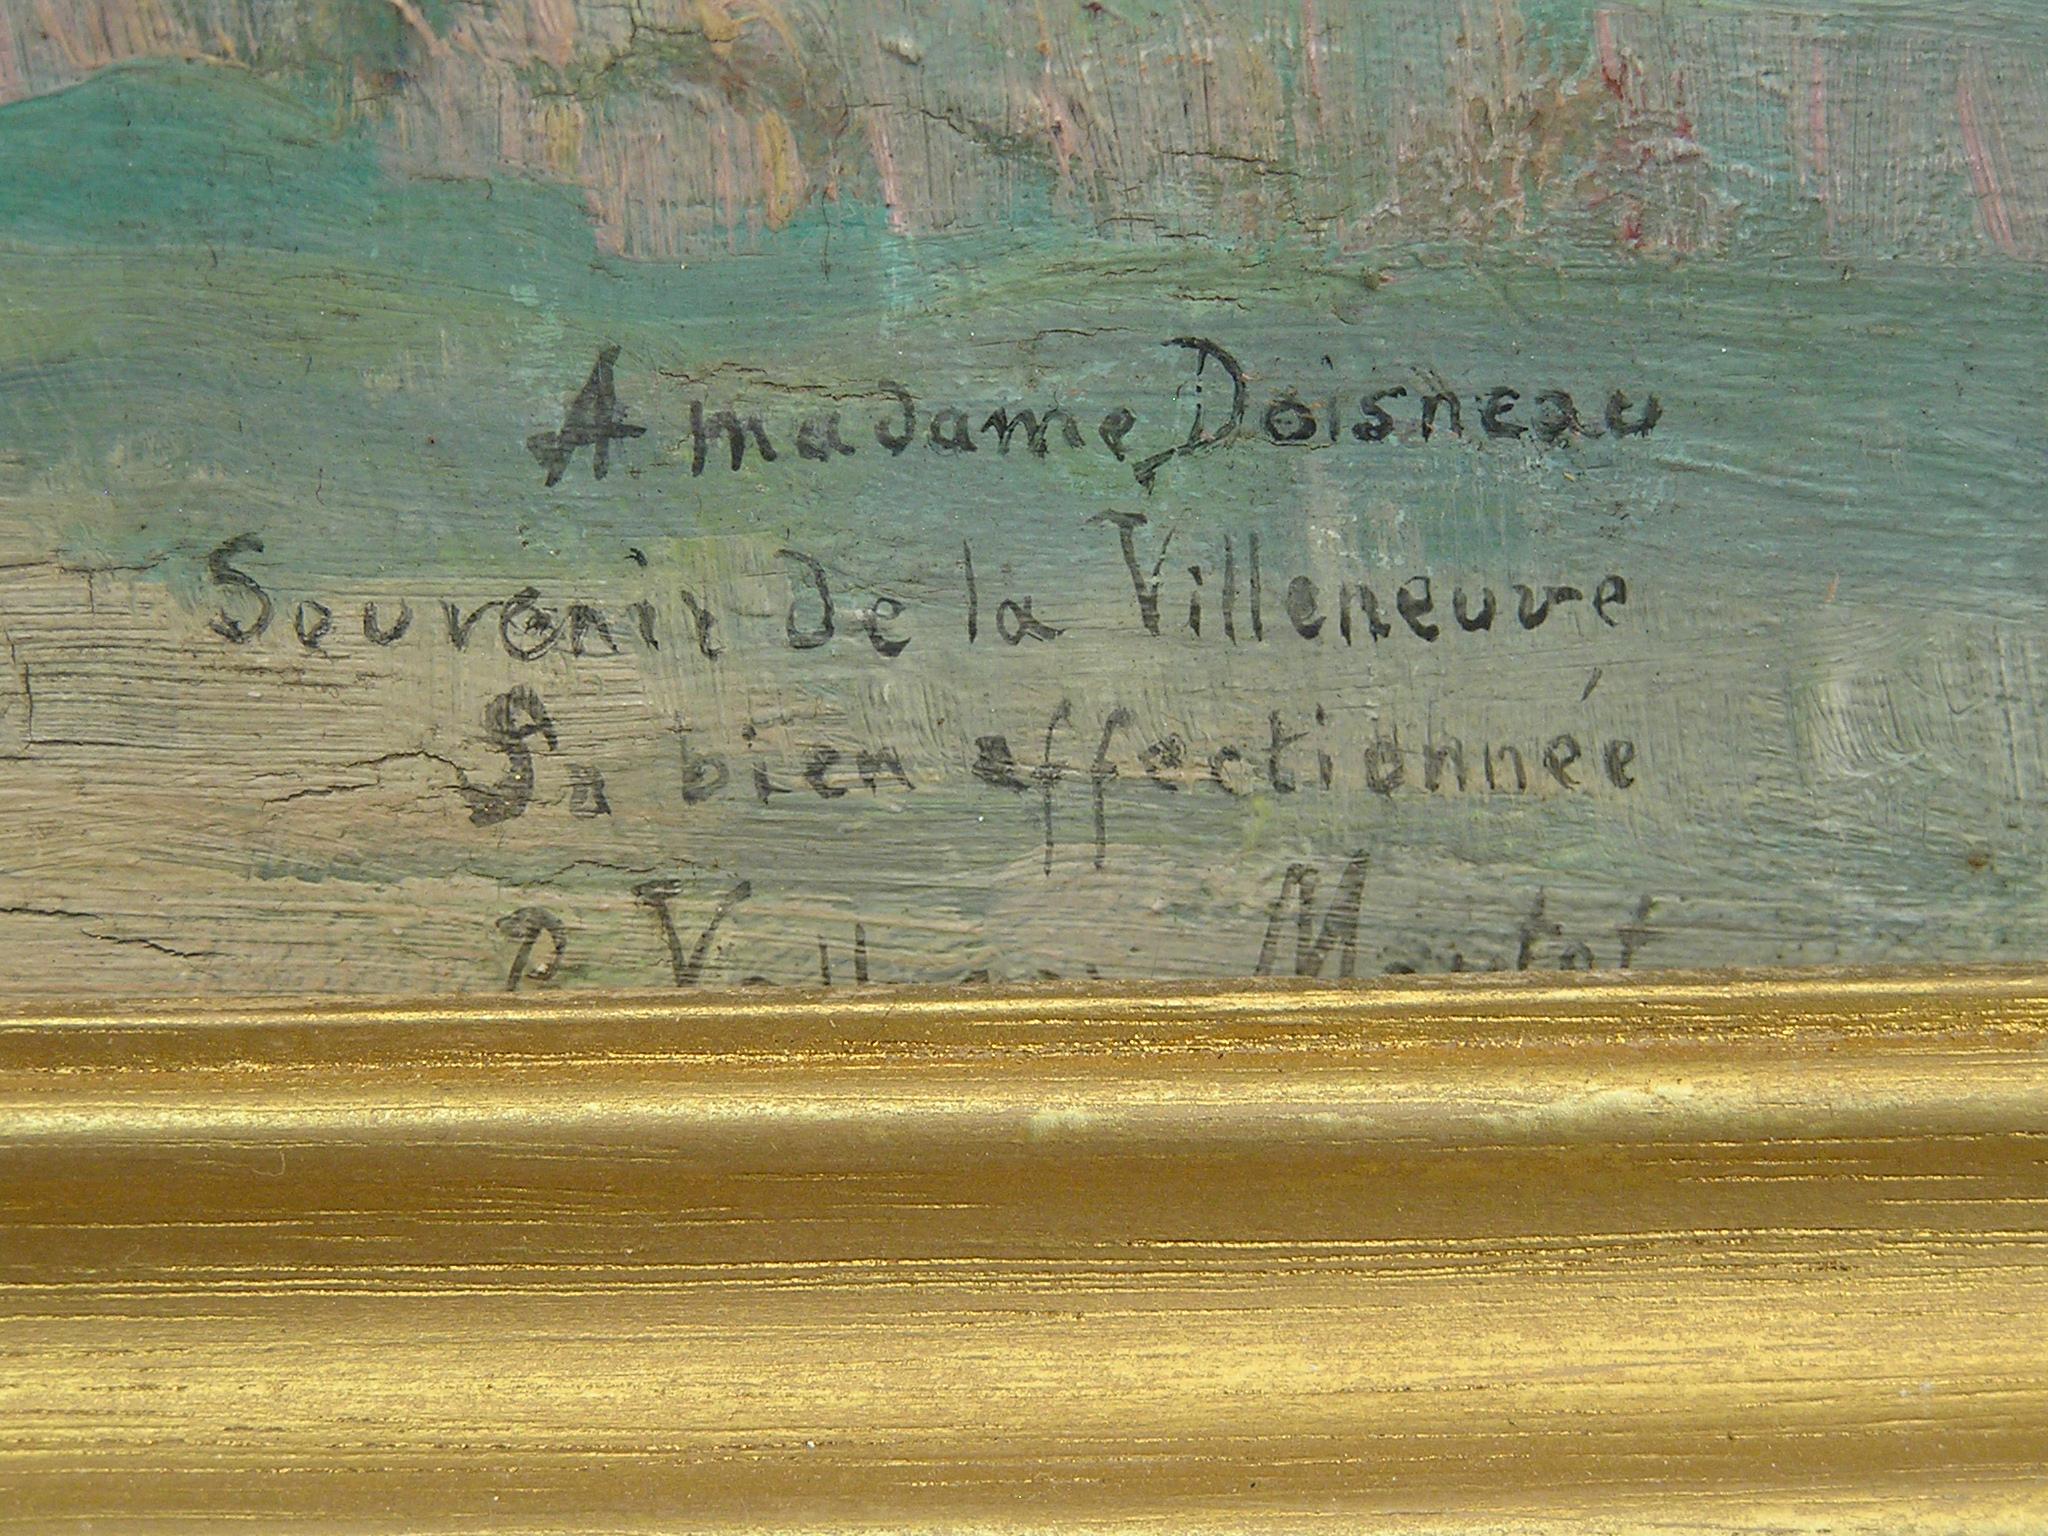 A madame Doisneau
Souvenir de la Villeneuve
Sa bien affectionnée
P. Mautot